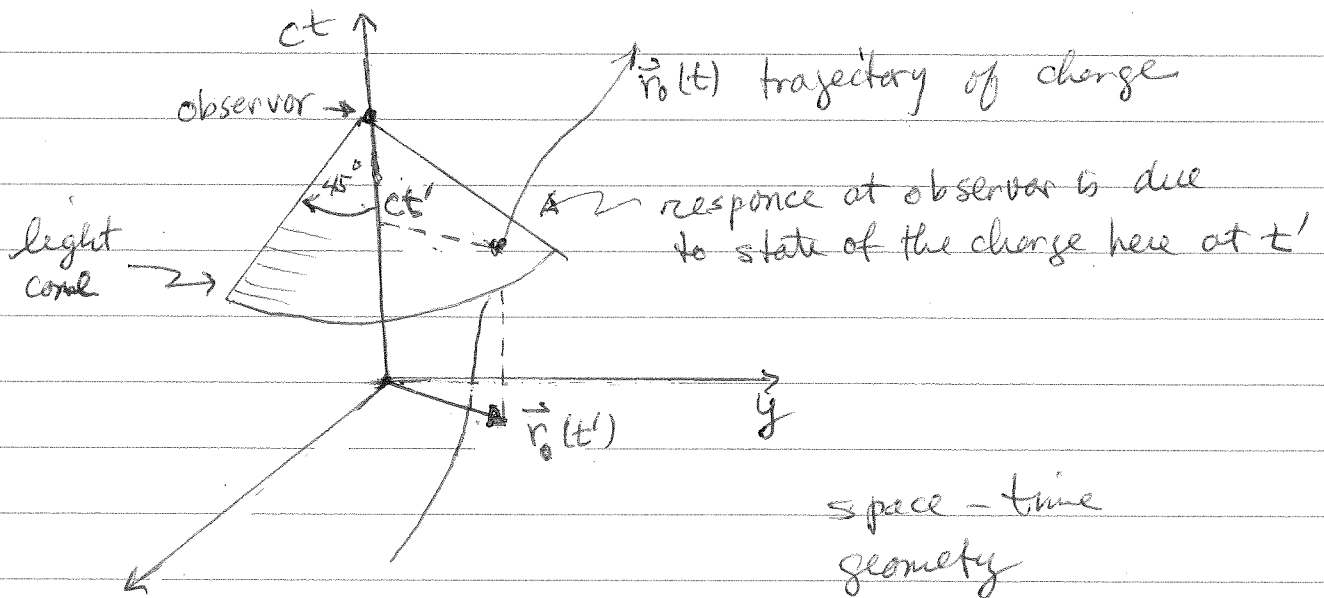 ct
r⃗₀(t) trajectory of charge
observor →
45°
ct'
responce at observor is due
to state of the charge here at t'
light
cone
y
r⃗₀(t')
space - time
geometry